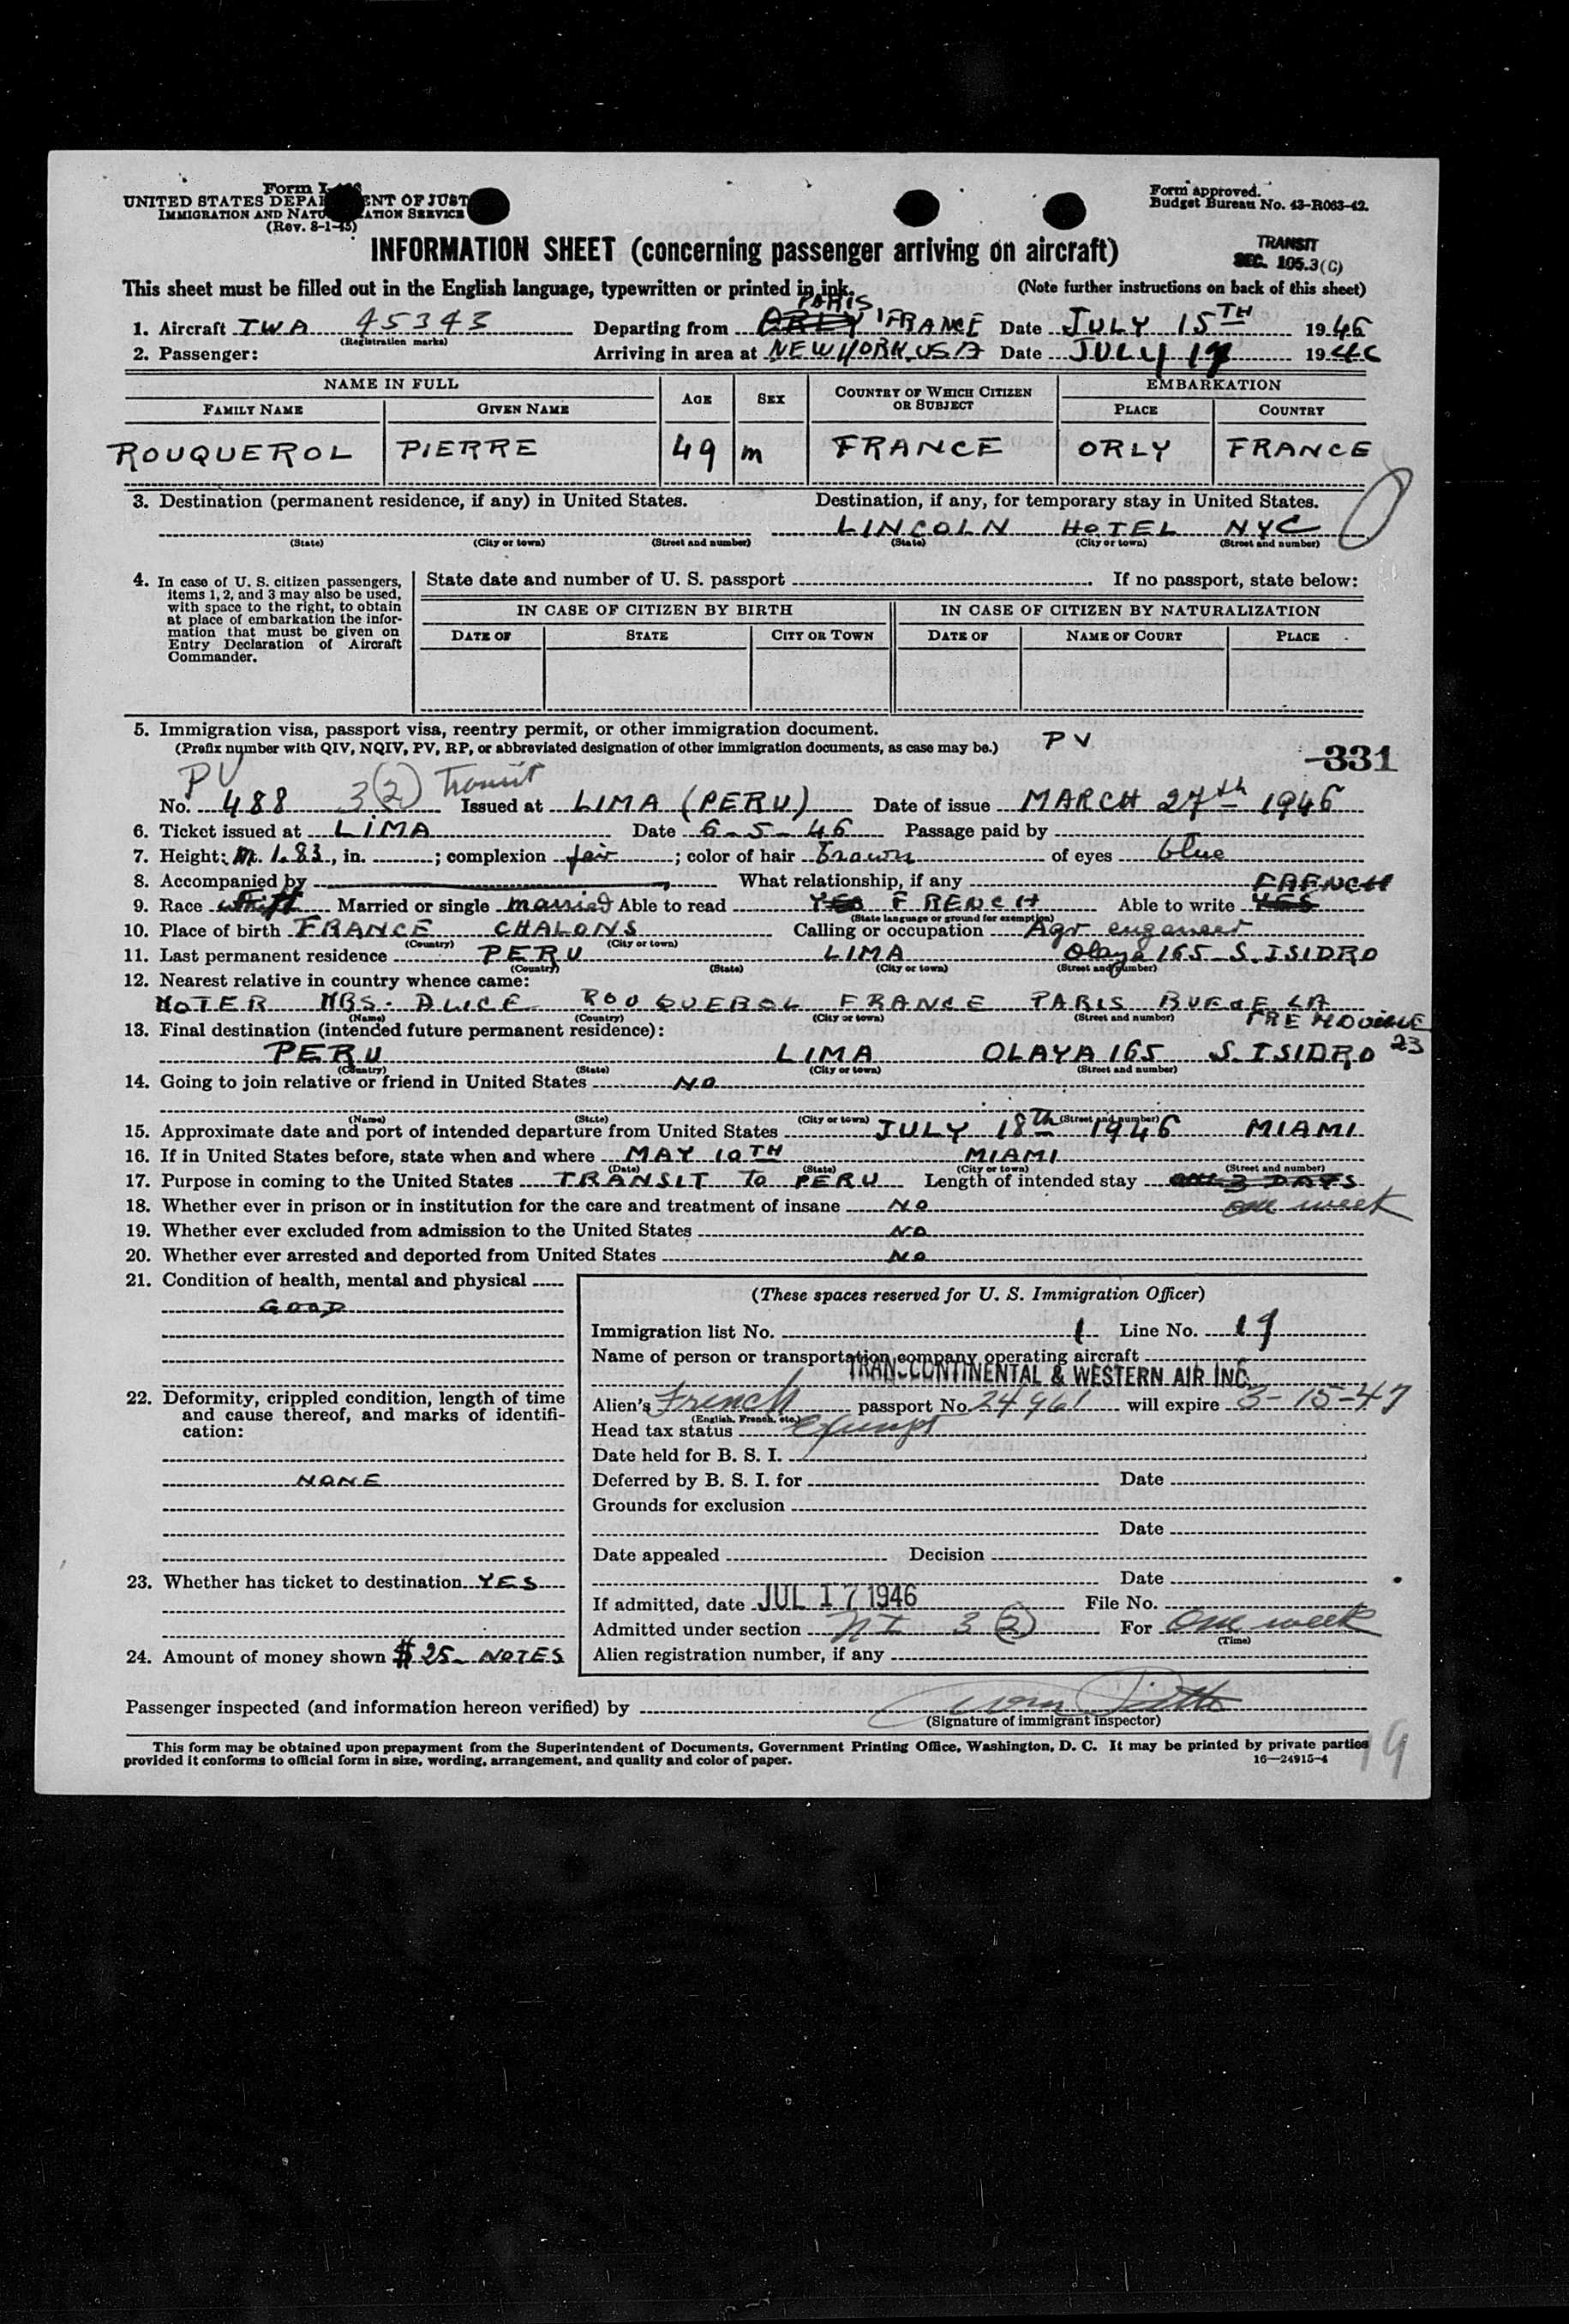 Form I-
UNITED STATES DEPARTMENT OF JUST
IMMIGRATION AND NATURALIZATION SERVICE
(Rev. 8-1-45)
Form approved.
Budget Bureau No. 43-R063-42.
INFORMATION SHEET (concerning passenger arriving on aircraft)
TRANSIT
SEC. 105.3(C)
This sheet must be filled out in the English language, typewritten or printed in ink. (Note further instructions on back of this sheet)
PARIS
1. Aircraft TWA 45343 Departing from ORLY FRANCE Date JULY 15TH 1946
(Registration marks)
2. Passenger: Arriving in area at NEW YORK USA Date JULY 17 1946
NAME IN FULL AGE SEX COUNTRY OF WHICH CITIZEN OR SUBJECT EMBARKATION
FAMILY NAME GIVEN NAME PLACE COUNTRY
ROUQUEROL PIERRE 49 m FRANCE ORLY FRANCE
3. Destination (permanent residence, if any) in United States. Destination, if any, for temporary stay in United States.
LINCOLN HOTEL NYC
(State) (City or town) (Street and number) (State) (City or town) (Street and number)
4. In case of U. S. citizen passengers, items 1, 2, and 3 may also be used, with space to the right, to obtain at place of embarkation the information that must be given on Entry Declaration of Aircraft Commander.
State date and number of U. S. passport If no passport, state below:
IN CASE OF CITIZEN BY BIRTH IN CASE OF CITIZEN BY NATURALIZATION
DATE OF STATE CITY OR TOWN DATE OF NAME OF COURT PLACE
5. Immigration visa, passport visa, reentry permit, or other immigration document.
(Prefix number with QIV, NQIV, PV, RP, or abbreviated designation of other immigration documents, as case may be.) PV
331
PV
No. 488 3(2) Transit Issued at LIMA (PERU) Date of issue MARCH 27th 1946
6. Ticket issued at LIMA Date 6-5-46 Passage paid by
7. Height: M. 1.83, in. ; complexion fair ; color of hair Brown of eyes blue
8. Accompanied by What relationship, if any
FRENCH
9. Race white Married or single married Able to read YES FRENCH Able to write YES
(State language or ground for exemption)
10. Place of birth FRANCE CHALONS Calling or occupation Agr engeneer
(Country) (City or town)
11. Last permanent residence PERU LIMA Olaya 165 S. ISIDRO
(Country) (State) (City or town) (Street and number)
12. Nearest relative in country whence came:
MOTER MRS. ALICE ROUQUEROL FRANCE PARIS RUE DE LA
(Name) (Country) (City or town) (Street and number)
TREMOUILLE
23
13. Final destination (intended future permanent residence):
PERU LIMA OLAYA 165 S. ISIDRO
(Country) (State) (City or town) (Street and number)
14. Going to join relative or friend in United States NO
(Name) (State) (City or town) (Street and number)
15. Approximate date and port of intended departure from United States JULY 18th 1946 MIAMI
16. If in United States before, state when and where MAY 10TH MIAMI
(Date) (State) (City or town) (Street and number)
17. Purpose in coming to the United States TRANSIT TO PERU Length of intended stay 3 DAYS
one week
18. Whether ever in prison or in institution for the care and treatment of insane NO
19. Whether ever excluded from admission to the United States NO
20. Whether ever arrested and deported from United States NO
21. Condition of health, mental and physical
GOOD
22. Deformity, crippled condition, length of time and cause thereof, and marks of identification:
NONE
23. Whether has ticket to destination YES
24. Amount of money shown $ 25 NOTES
(These spaces reserved for U. S. Immigration Officer)
Immigration list No. 1 Line No. 19
Name of person or transportation company operating aircraft
TRANSCONTINENTAL & WESTERN AIR INC
Alien's French passport No. 24961 will expire 3-15-47
(English, French, etc.)
Head tax status Exempt
Date held for B. S. I.
Deferred by B. S. I. for Date
Grounds for exclusion
Date
Date appealed Decision
Date
If admitted, date JUL 17 1946 File No.
Admitted under section NI 3 (2) For One week
(Time)
Alien registration number, if any
Passenger inspected (and information hereon verified) by
(Signature of immigrant inspector)
This form may be obtained upon prepayment from the Superintendent of Documents, Government Printing Office, Washington, D. C. It may be printed by private parties
provided it conforms to official form in size, wording, arrangement, and quality and color of paper. 16—24915-4
19